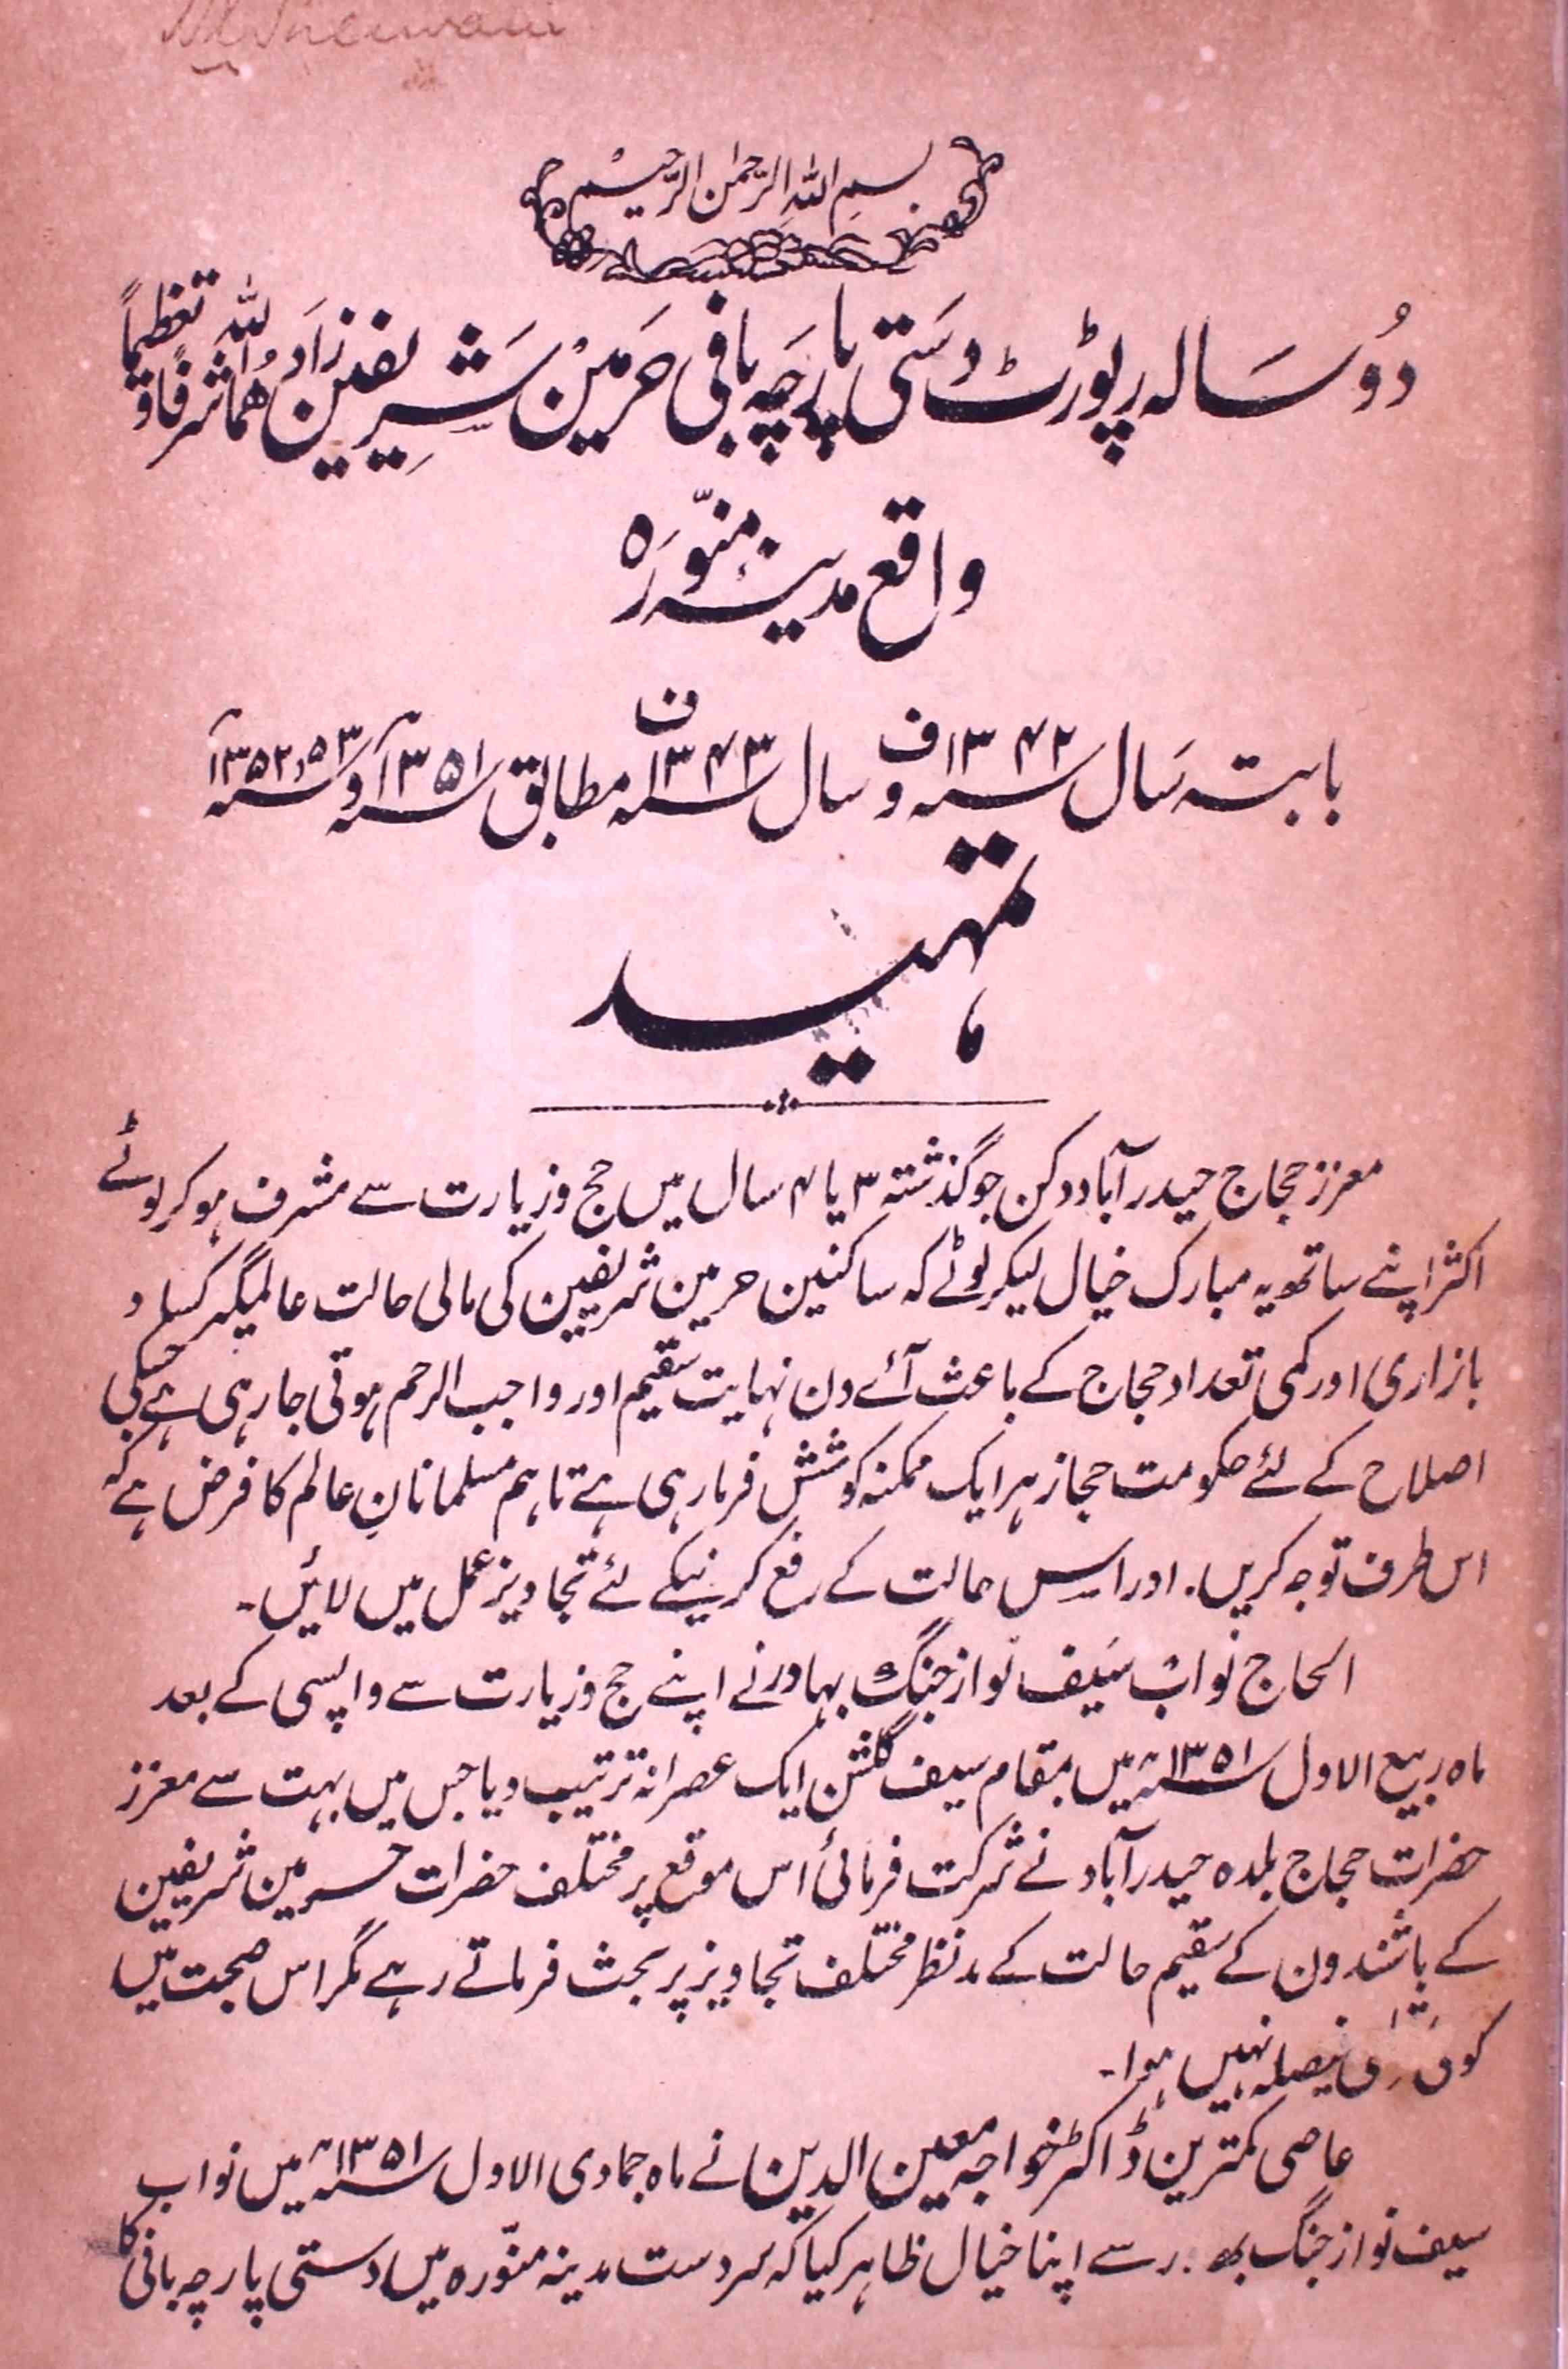 بسم الله الرحمن الرحیم
دُو سَالہ رپورٹ دستی پارچہ بافی حرمین شریفین زاد ہُما اللہ شرفاً و تعظیماً
واقع مدینہ منوّرہ
بابتہ سال ۱۳۴۲ ف و سال ۱۳۴۳ ف مطابق ۱۳۵۱ھ و ۵۳، ۱۳۵۲ھ
تمہید
معزز حجاج حیدرآباد دکن جو گذشتہ ۳ یا ۴ سال میں حج و زیارت سے مشرف ہو کر لوٹے
اکثر اپنے ساتھ یہ مبارک خیال لیکر لوٹے کہ ساکنین حرمین شریفین کی مالی حالت عالمگیر کساد
بازاری اور کمی تعداد حجاج کے باعث آئے دن نہایت سقیم اور واجب الرحم ہوتی جارہی ہے جسکی
اصلاح کے لئے حکومت حجاز ہر ایک ممکنہ کوشش فرمارہی ہے تاہم مسلمانانِ عالم کا فرض ہے کہ
اس طرف توجہ کریں۔ اور اس حالت کے رفع کرنیکے لئے تجاویز عمل میں لائیں۔
الحاج نواب سیف نواز جنگ بہادر نے اپنے حج و زیارت سے واپسی کے بعد
ماہ ربیع الاول ۱۳۵۱ھ میں بمقام سیف گلشن ایک عصرانہ ترتیب دیا جس میں بہت سے معزز
حضرات حجاج بلدہ حیدرآباد نے شرکت فرمائی اس موقع پر مختلف حضرات حرمین شریفین
کے باشندون کے سقیم حالت کے مدنظر مختلف تجاویز پر بحث فرماتے رہے مگر اس صحبت میں
کوئی فیصلہ نہیں ہوا۔
عاصی کمترین ڈاکٹر خواجہ معین الدین نے ماہ جمادی الاول ۱۳۵۱ھ میں نواب
سیف نواز جنگ سے اپنا خیال ظاہر کیا کہ سردست مدینہ منوّرہ میں دستی پارچہ بافی کا